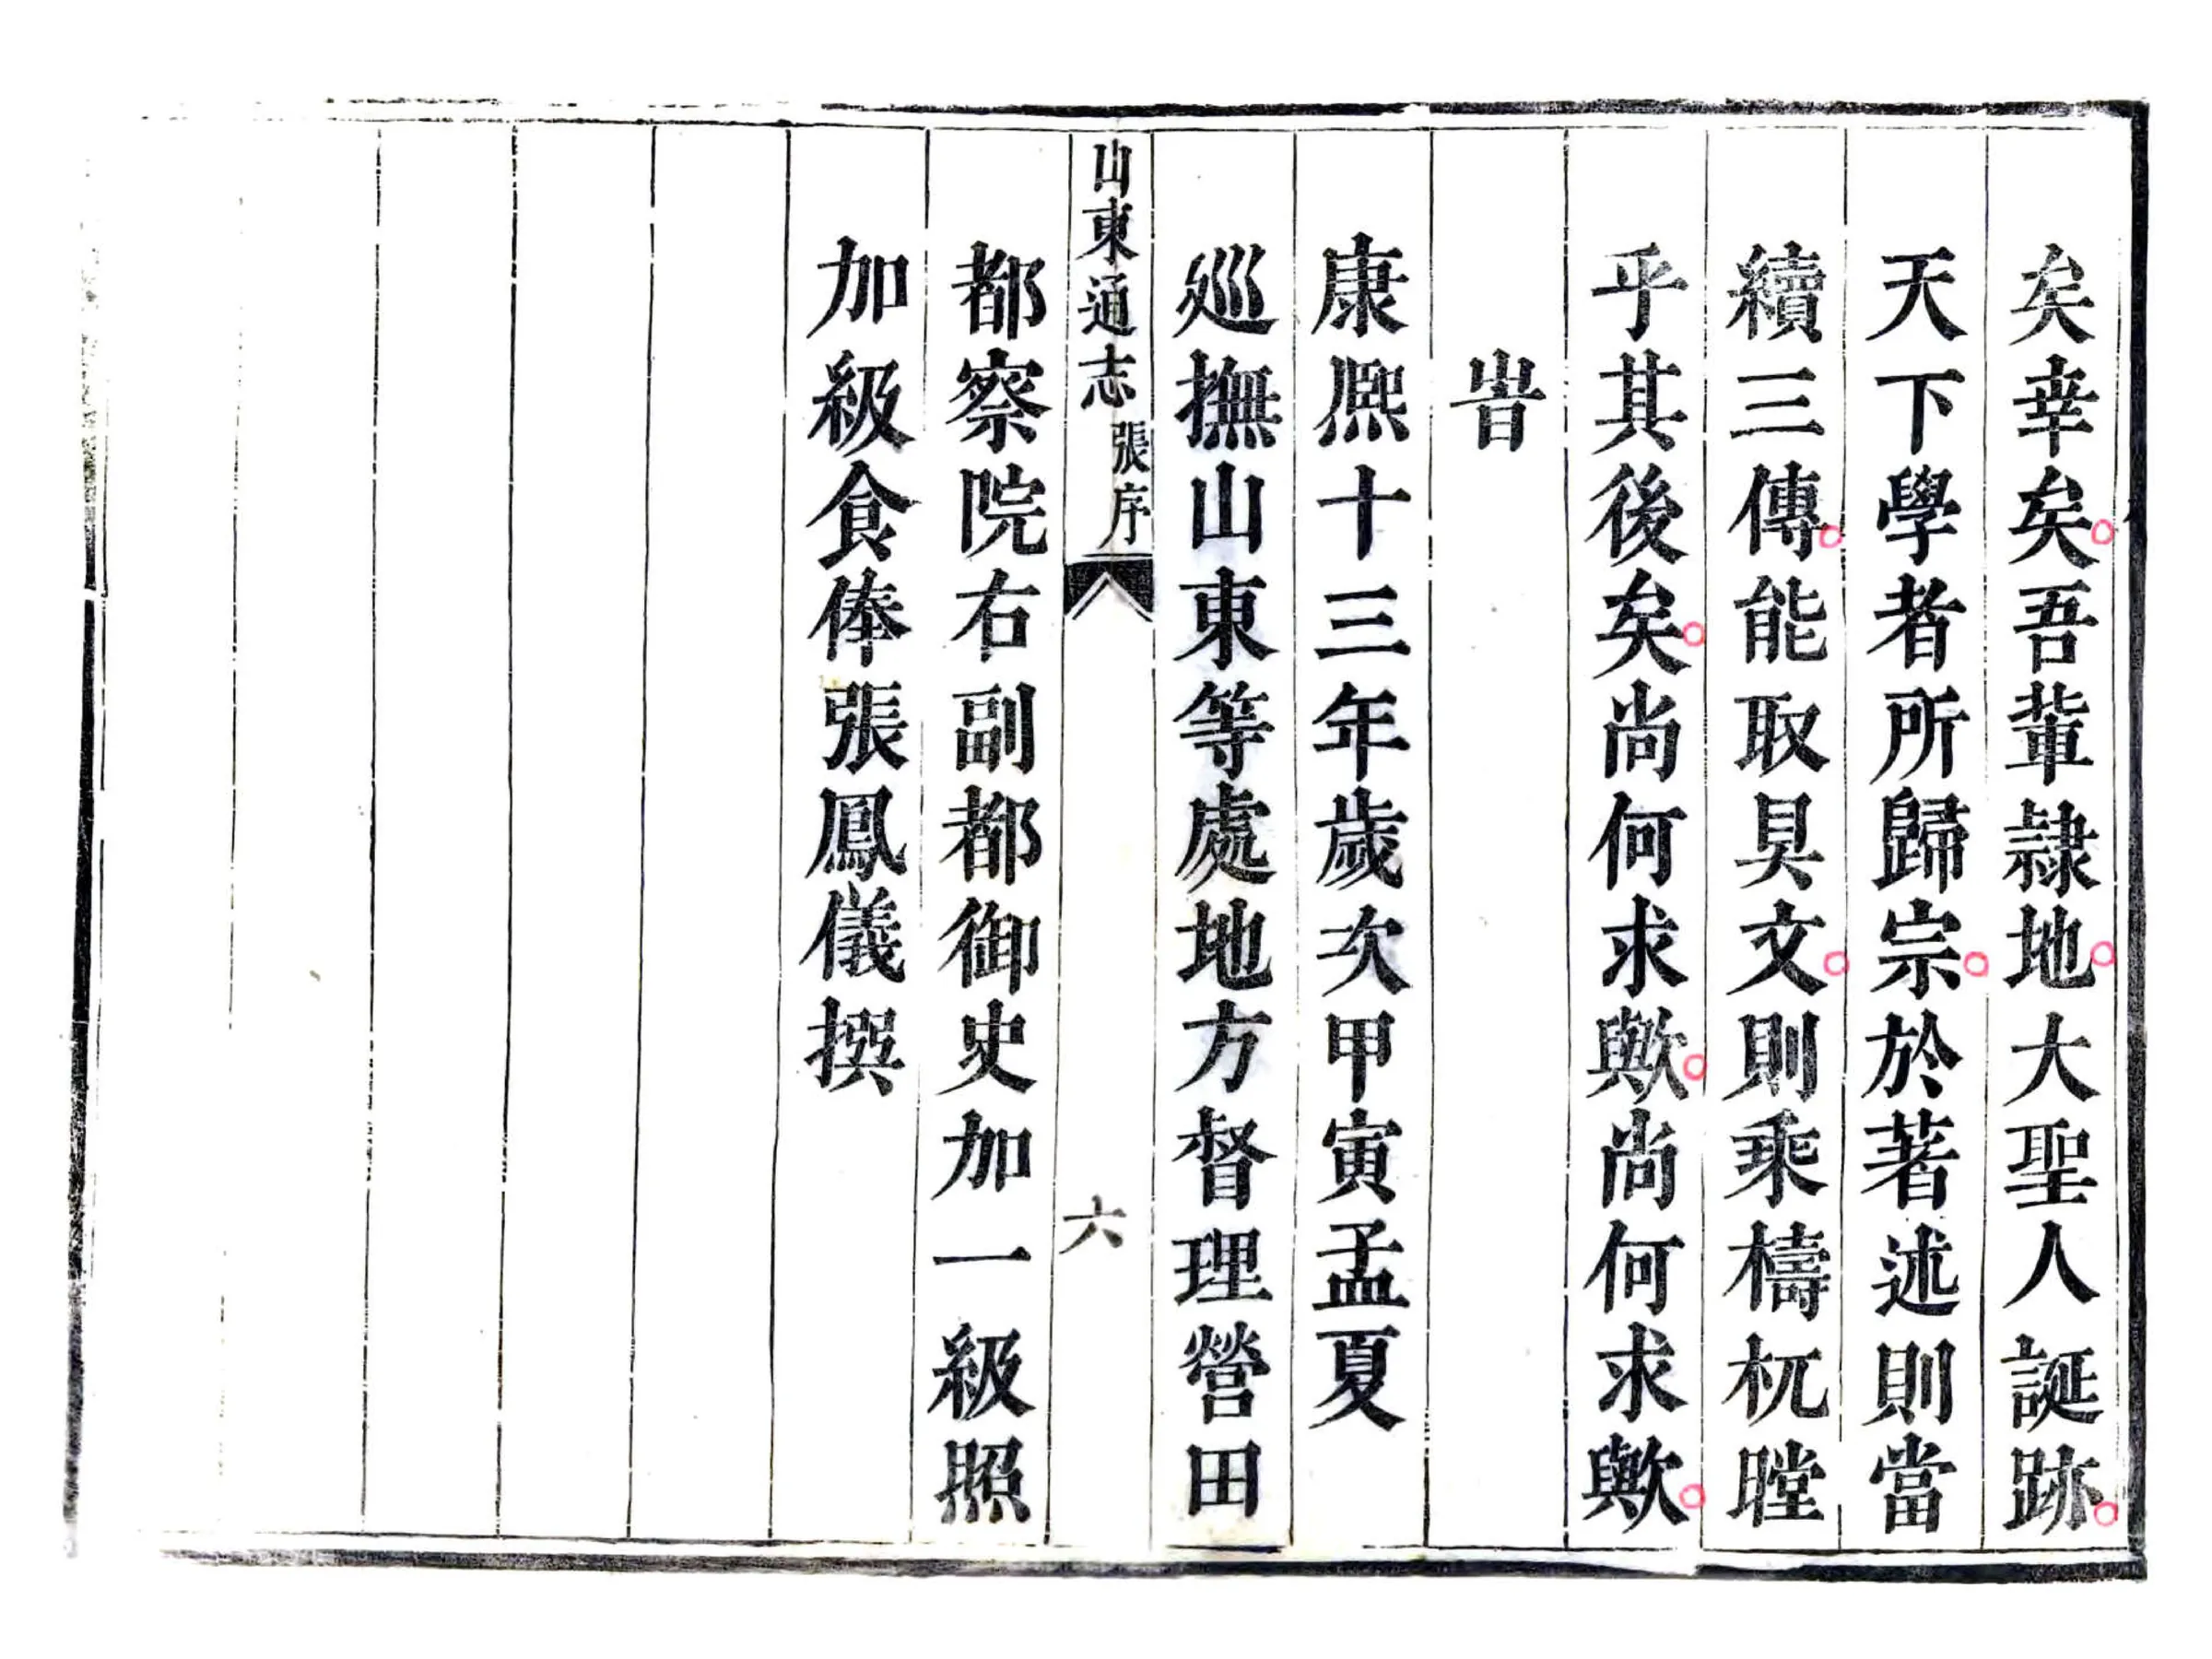 矣幸矣吾輩隷地大聖人誕跡
天下學者所歸宗於著述則當
續三傳能取具文則乘檮杌瞠
乎其後矣尚何求歟尚何求歟
旹
康熈十三年歲次甲寅孟夏
廵撫山東等處地方督理營田
山東通志 張序 六
都察院右副都御史加一級照
加級食俸張鳳儀撰